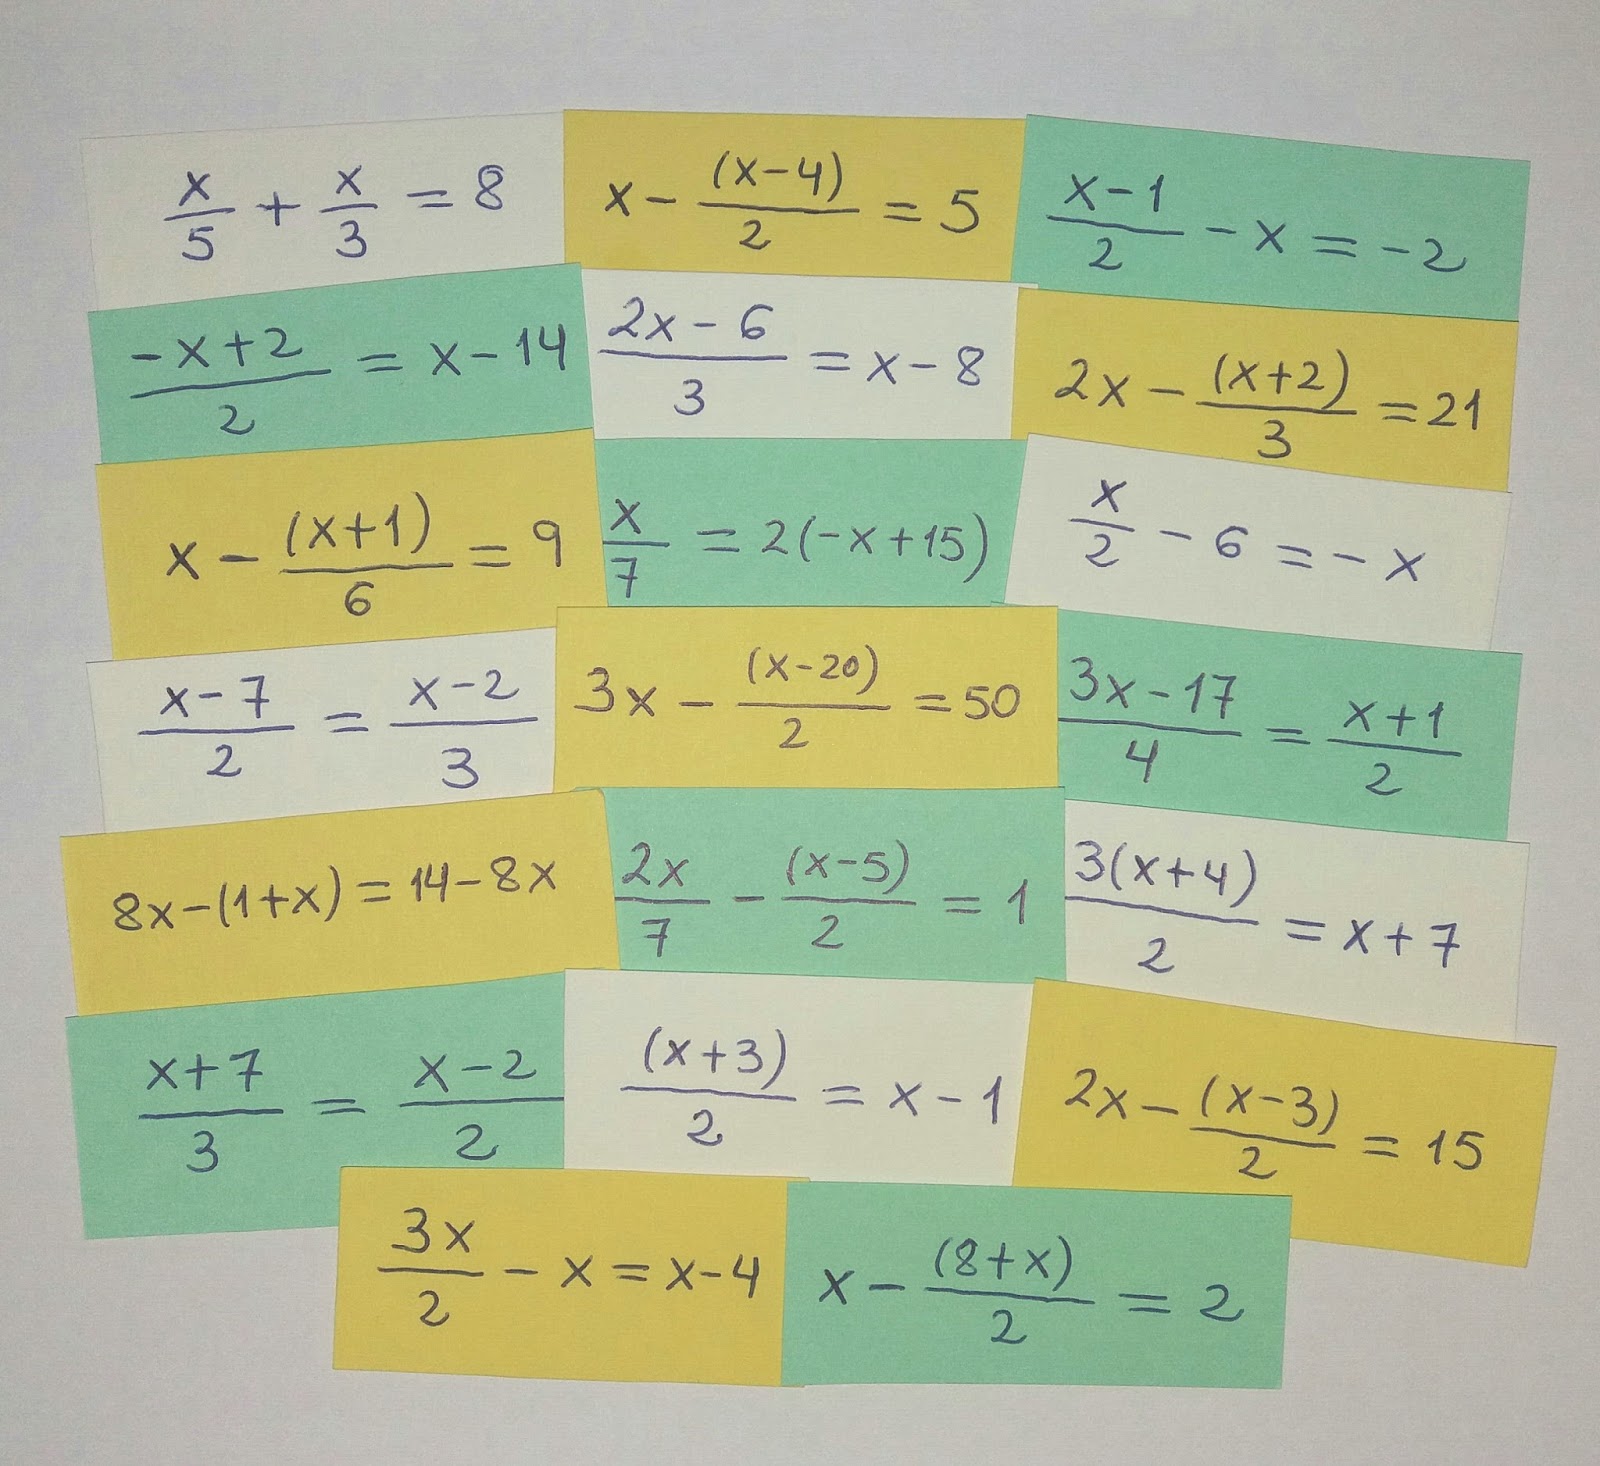 x/5 + x/3 = 8
x - (x-4)/2 = 5
x-1/2 - x = -2
-x+2/2 = x-14
2x-6/3 = x-8
2x - (x+2)/3 = 21
x - (x+1)/6 = 9
x/7 = 2(-x+15)
x/2 - 6 = -x
x-7/2 = x-2/3
3x - (x-20)/2 = 50
3x-17/4 = x+1/2
8x-(1+x) = 14-8x
2x/7 - (x-5)/2 = 1
3(x+4)/2 = x+7
x+7/3 = x-2/2
(x+3)/2 = x-1
2x - (x-3)/2 = 15
3x/2 - x = x-4
x - (8+x)/2 = 2